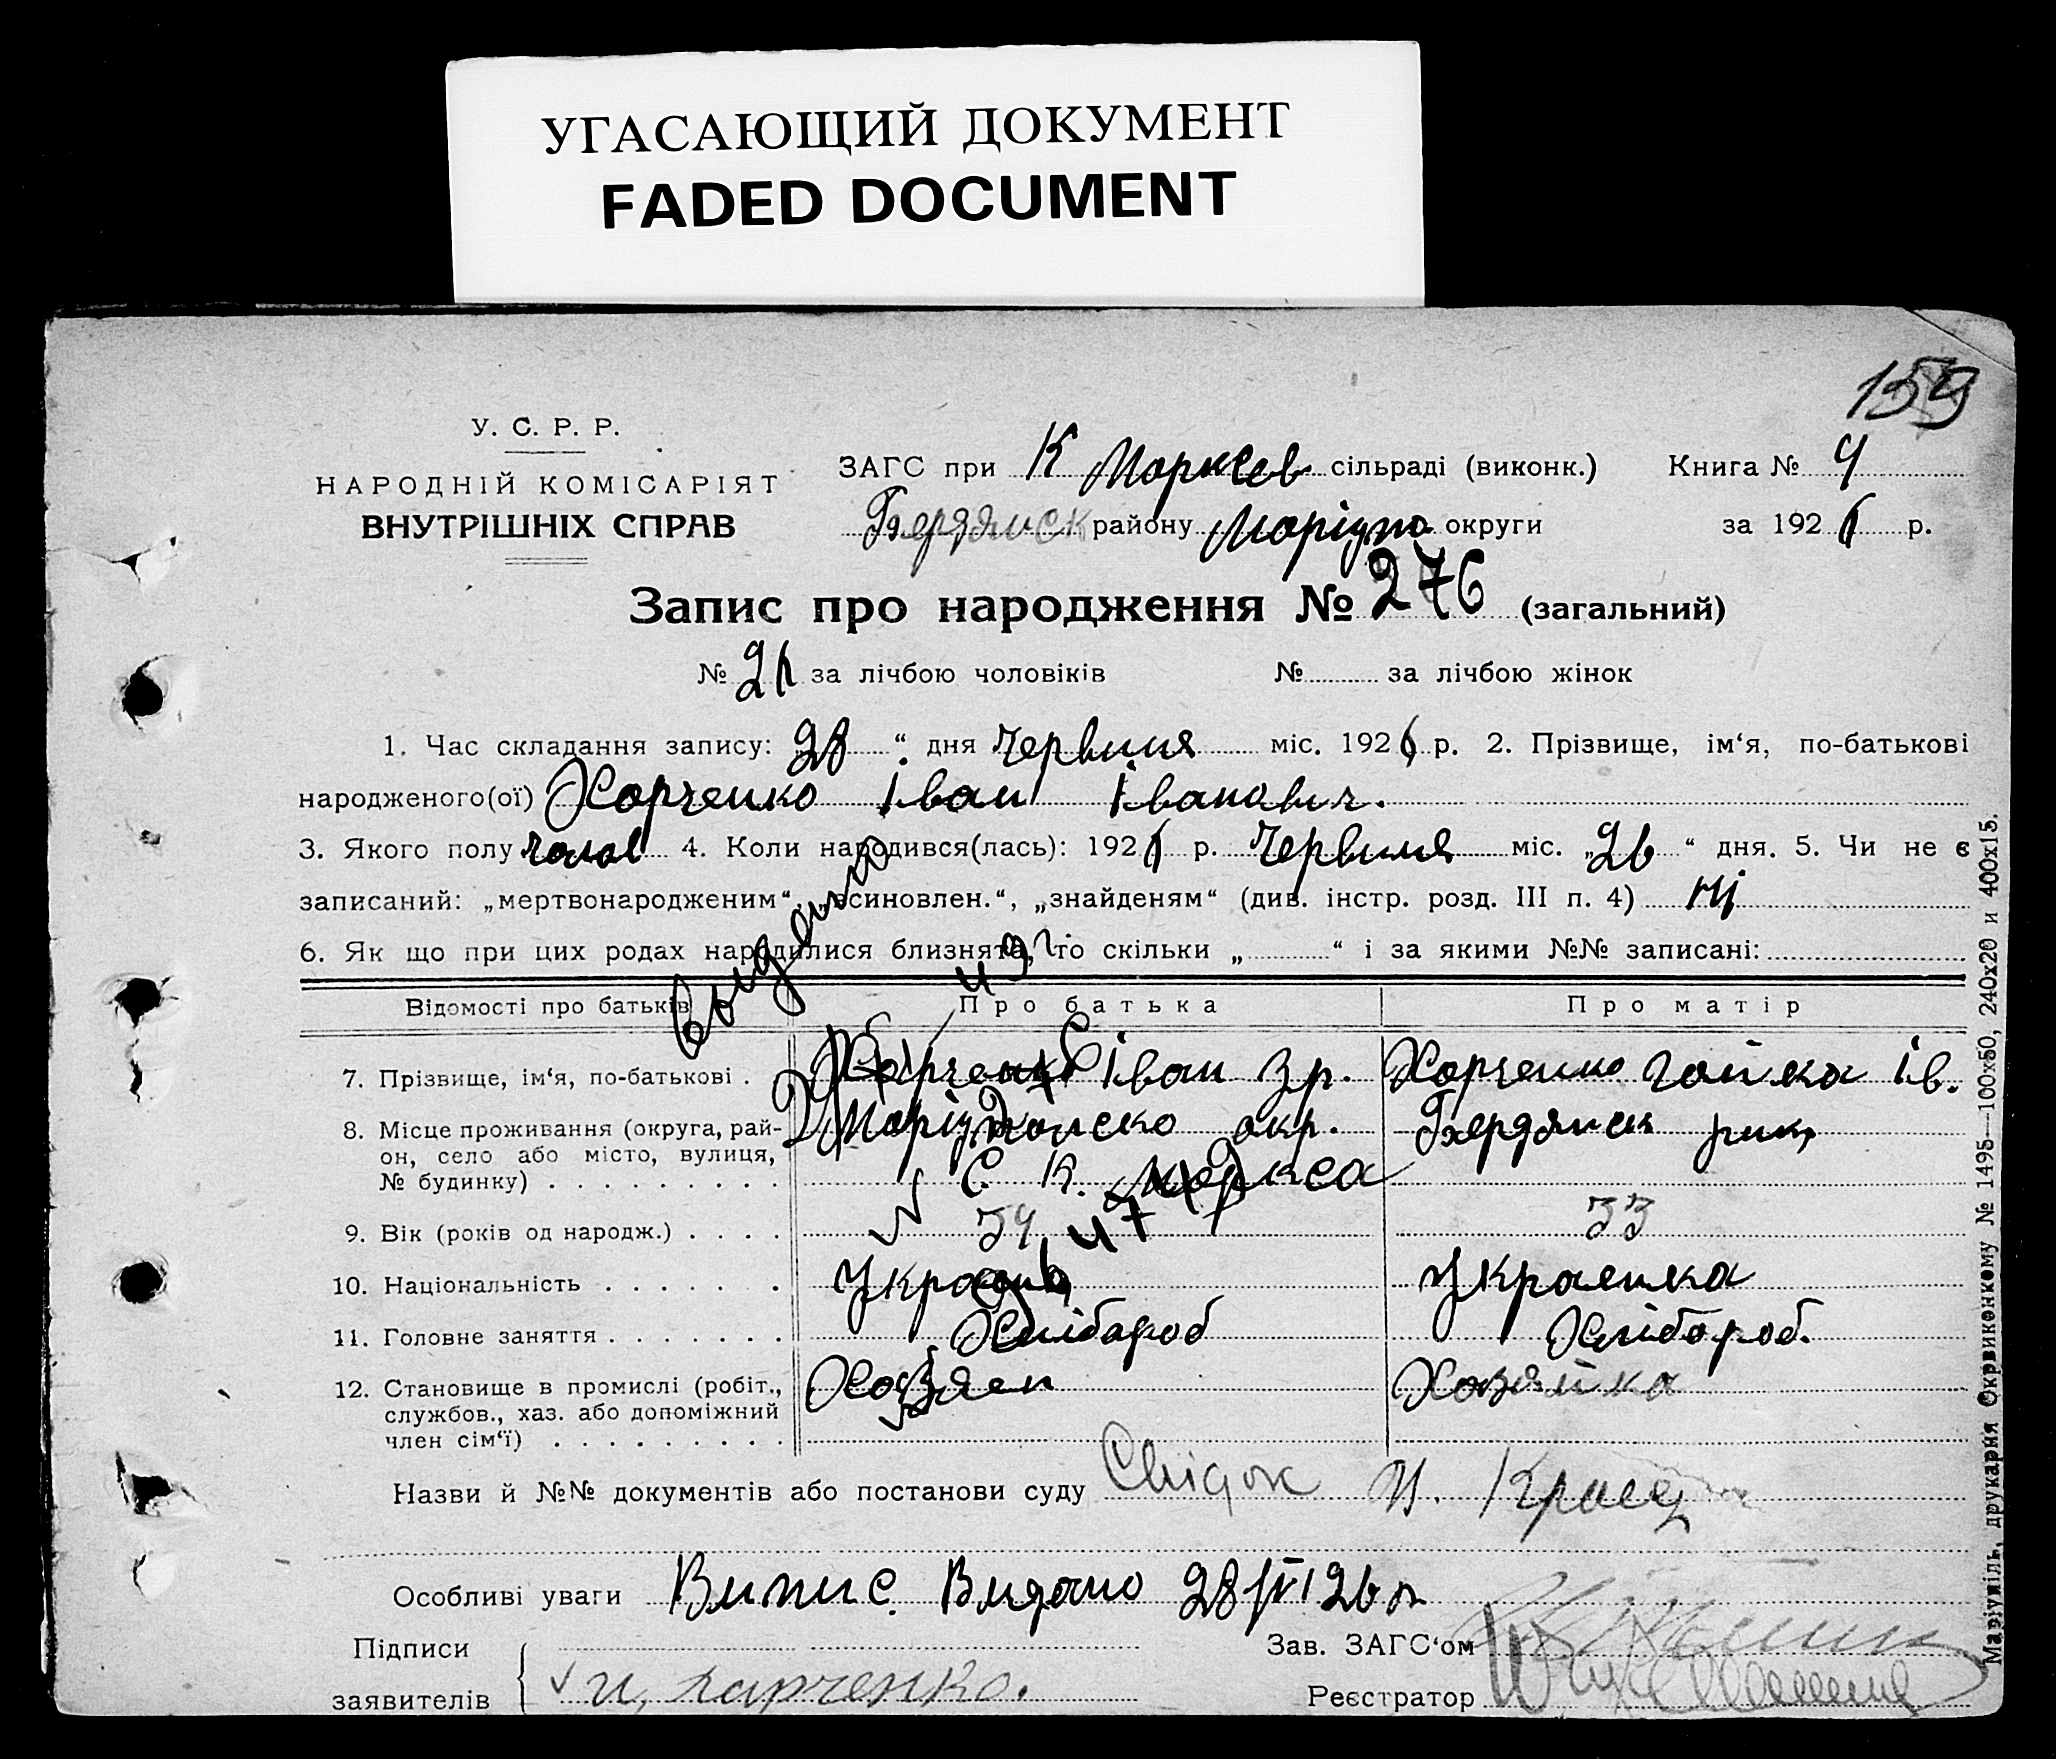 УГАСАЮЩИЙ ДОКУМЕНТ
FADED DOCUMENT
159
У. С. Р. Р.
НАРОДНІЙ КОМІСАРІЯТ
ВНУТРІШНІХ СПРАВ
ЗАГС при К Марксов сільраді (виконк.) Книга № 4
Бердянск району Маріуп округи за 1926 р.
Запис про народження № 276 (загальний)
№ за лічбою чоловіків № за лічбою жінок
1. Час складання запису: „28“ дня Червиня міс. 1926 р. 2. Прізвище, ім‘я, по-батькові
народженого(ої) Харченко Іван Іванович.
3. Якого полу чолов 4. Коли народився(лась): 1926 р. Червиня міс. „26“ дня. 5. Чи не є
записаний: „мертвонародженим“, „всиновлен.“, „знайденям“ (див. інстр. розд. III п. 4) ні
6. Як що при цих родах народилися близнята, то скільки „ “ і за якими №№ записані:
Відомості про батьків Про батька Про матір
7. Прізвище, ім‘я, по-батькові . Харченко Іван Зр. Харченко Ів.
8. Місце проживання (округа, рай- окр. Бердянск рик,
он, село або місто, вулиця, С. К. Маркса
№ будинку) . . . . . . . . .
9. Вік (років од народж.) . . . . 34 33
10. Національність . . . . . . . Украинка
11. Головне заняття . . . . . . . Хлібороб Хлібороб.
12. Становище в промислі (робіт., Хозяен Хозяйка
службов., хаз. або допоміжний
член сім‘ї) . . . . . . . . .
Назви й №№ документів або постанови суду Свідок И.
Особливі уваги Випис. Видано 28/VI 26 р
Підписи Зав. ЗАГС‘ом
заявителів и, харченко. Реєстратор
выдано
Маріупіль, друкарня Окрвиконкому № 1495—100х50, 240х20 и 400х15.